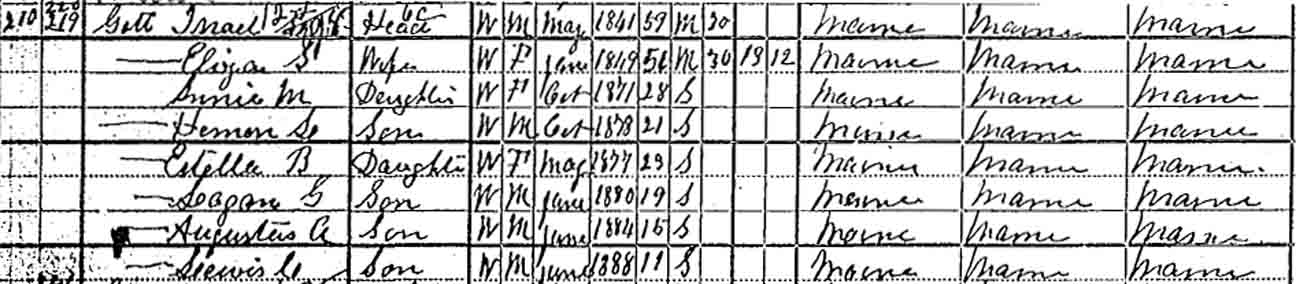 210 219 Gott Israel Head W M May 1841 59 M 30 Maine Maine Maine
— Eliza S Wife W F June 1849 51 M 30 13 12 Maine Maine Maine
Annie M Daughter W F Oct 1871 28 S Maine Maine Maine
— Hemon Son W M Oct 1878 21 S Maine Maine Maine
— Estella B Daughter W F May 1877 23 S Maine Maine Maine
— G Son W M June 1880 19 S Maine Maine Maine
— Augustus A Son W M June 1884 15 S Maine Maine Maine
— Lewis Son W M June 1888 11 S Maine Maine Maine